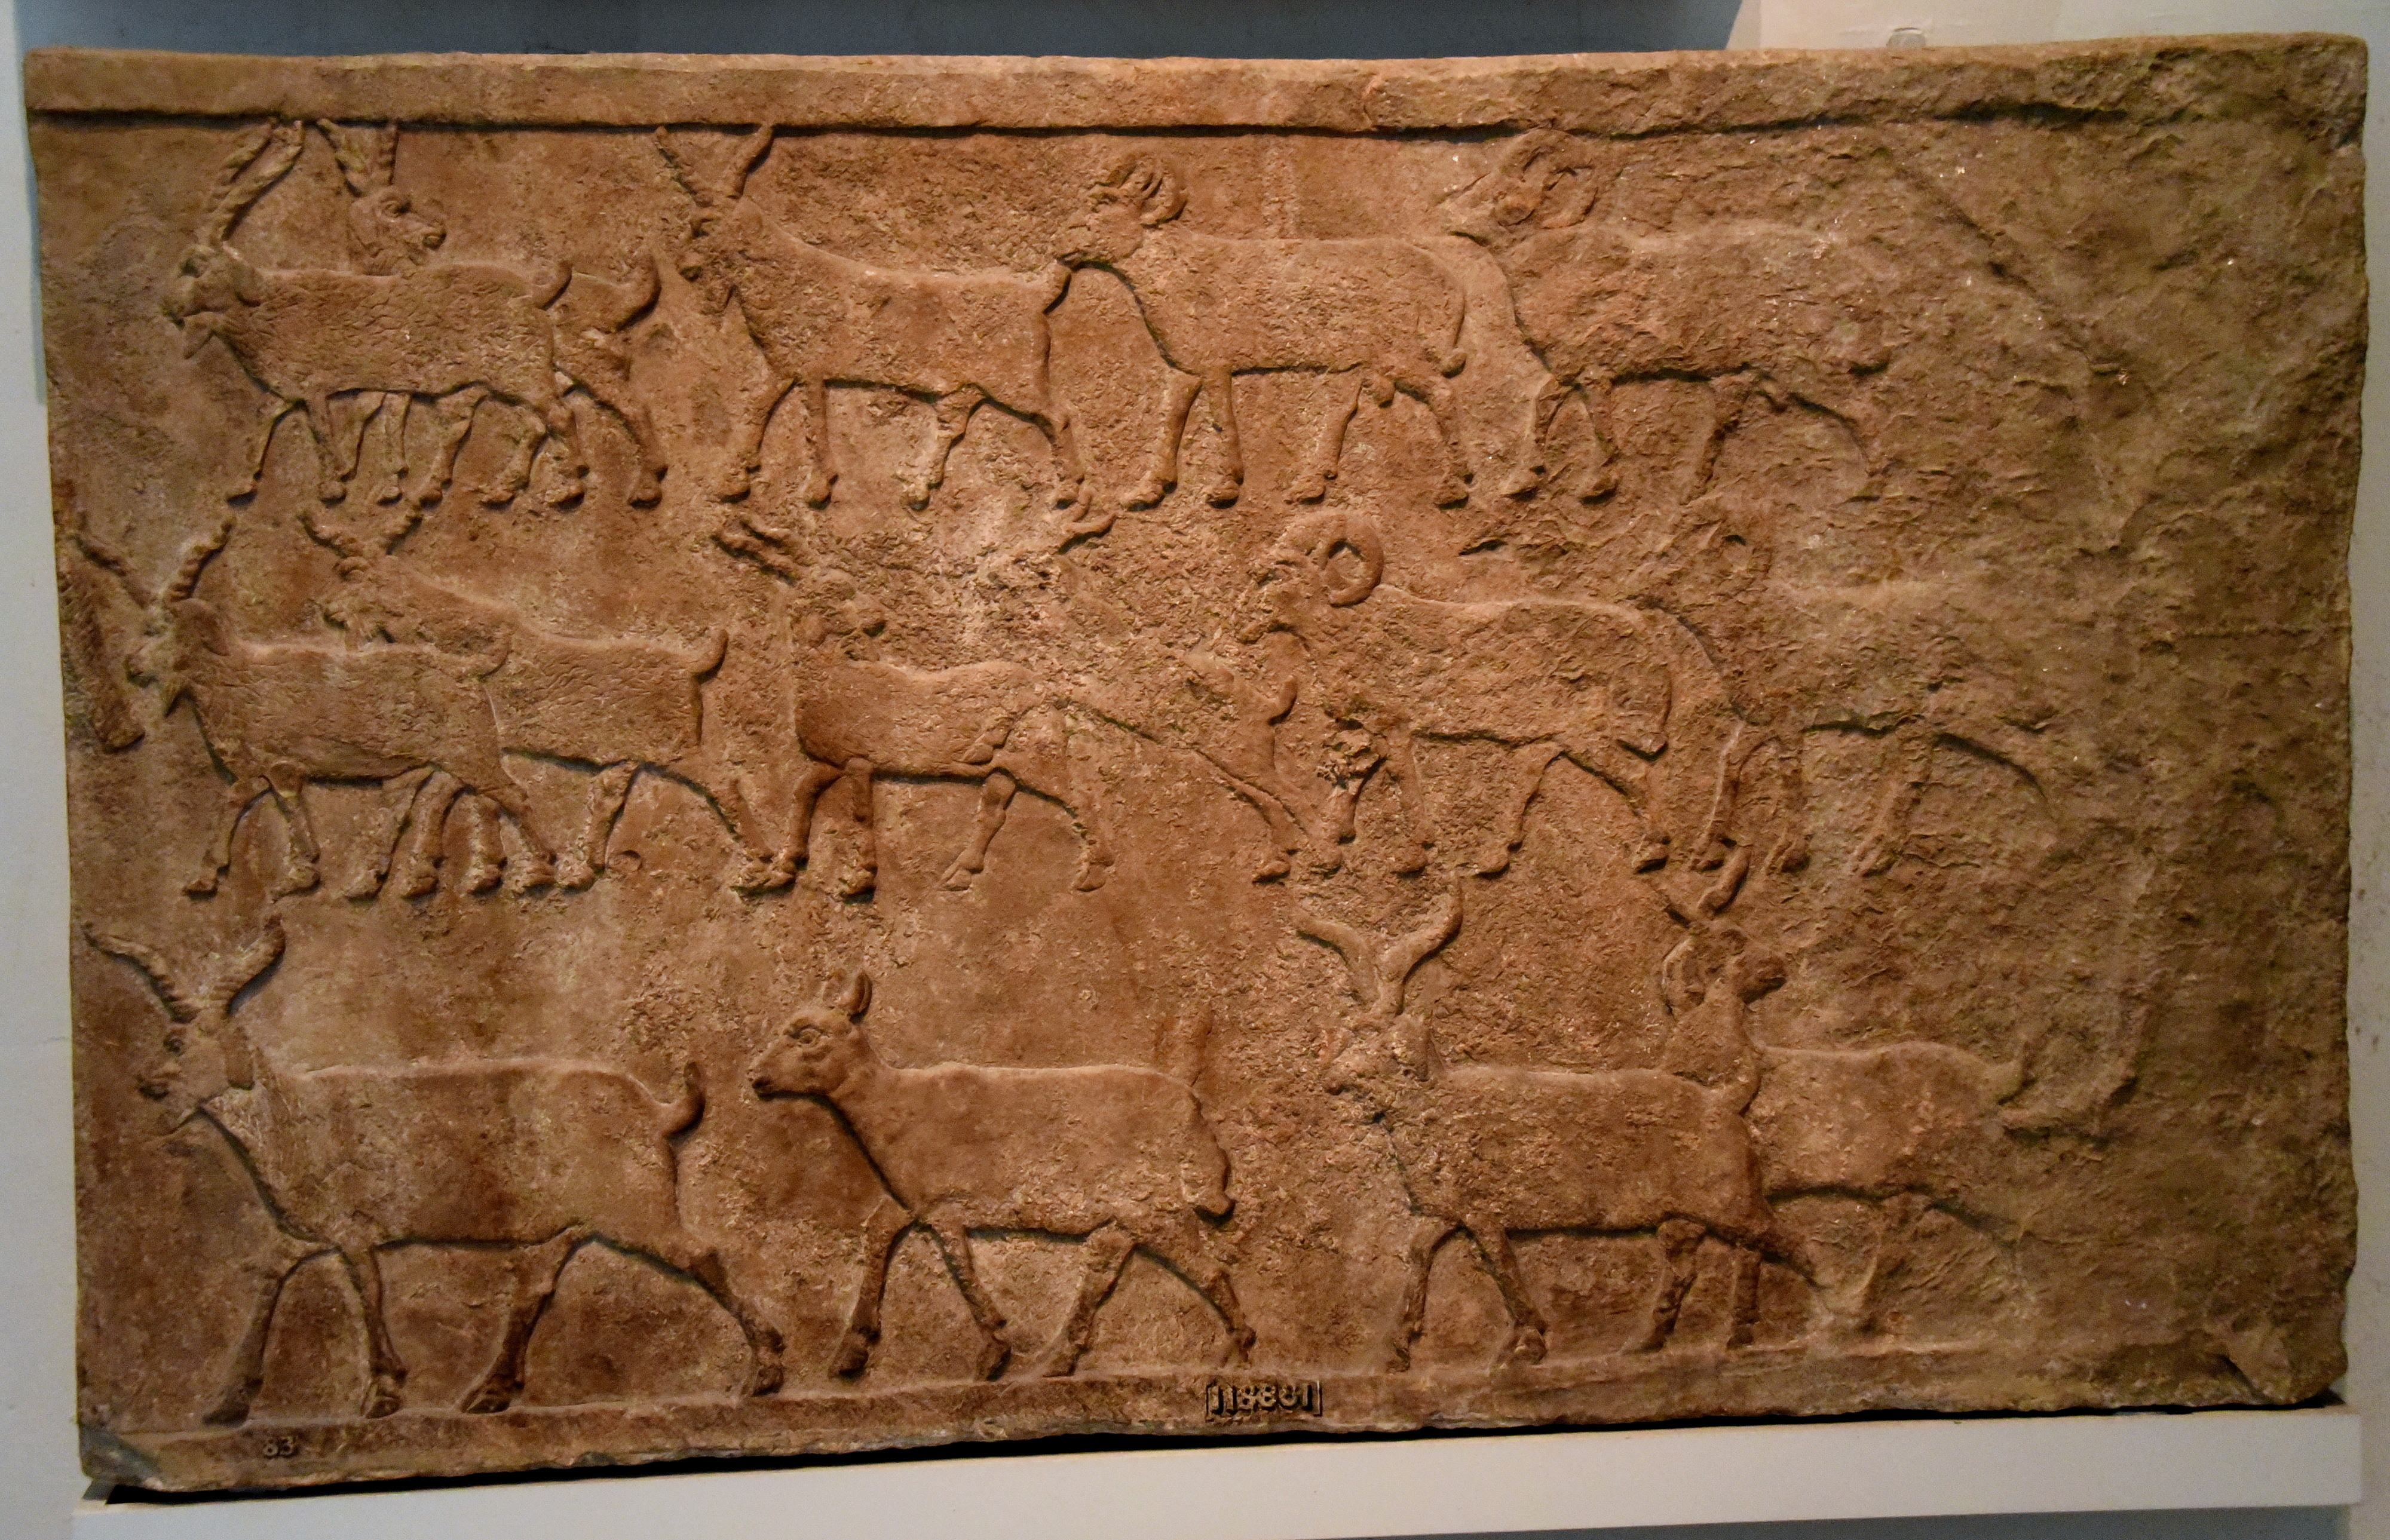 [118881]
83